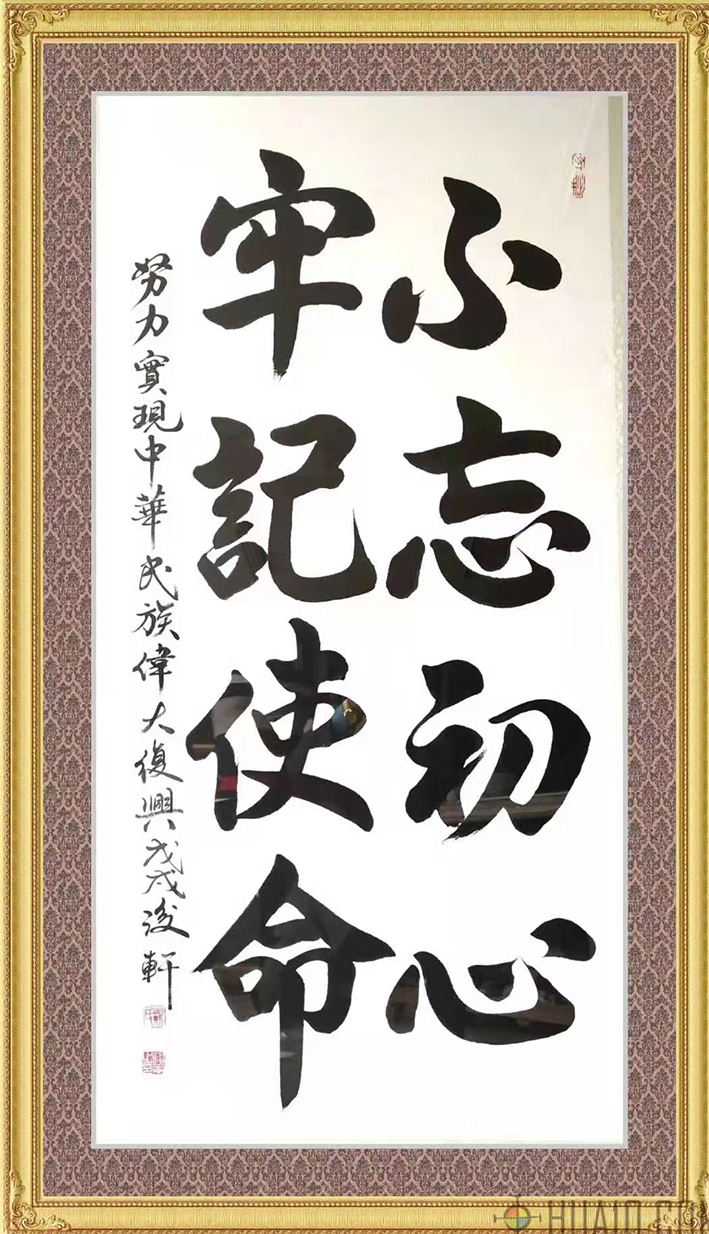 不忘初心
牢記使命
努力實現中華民族偉大復興戊戌浚軒
HUA10.COM